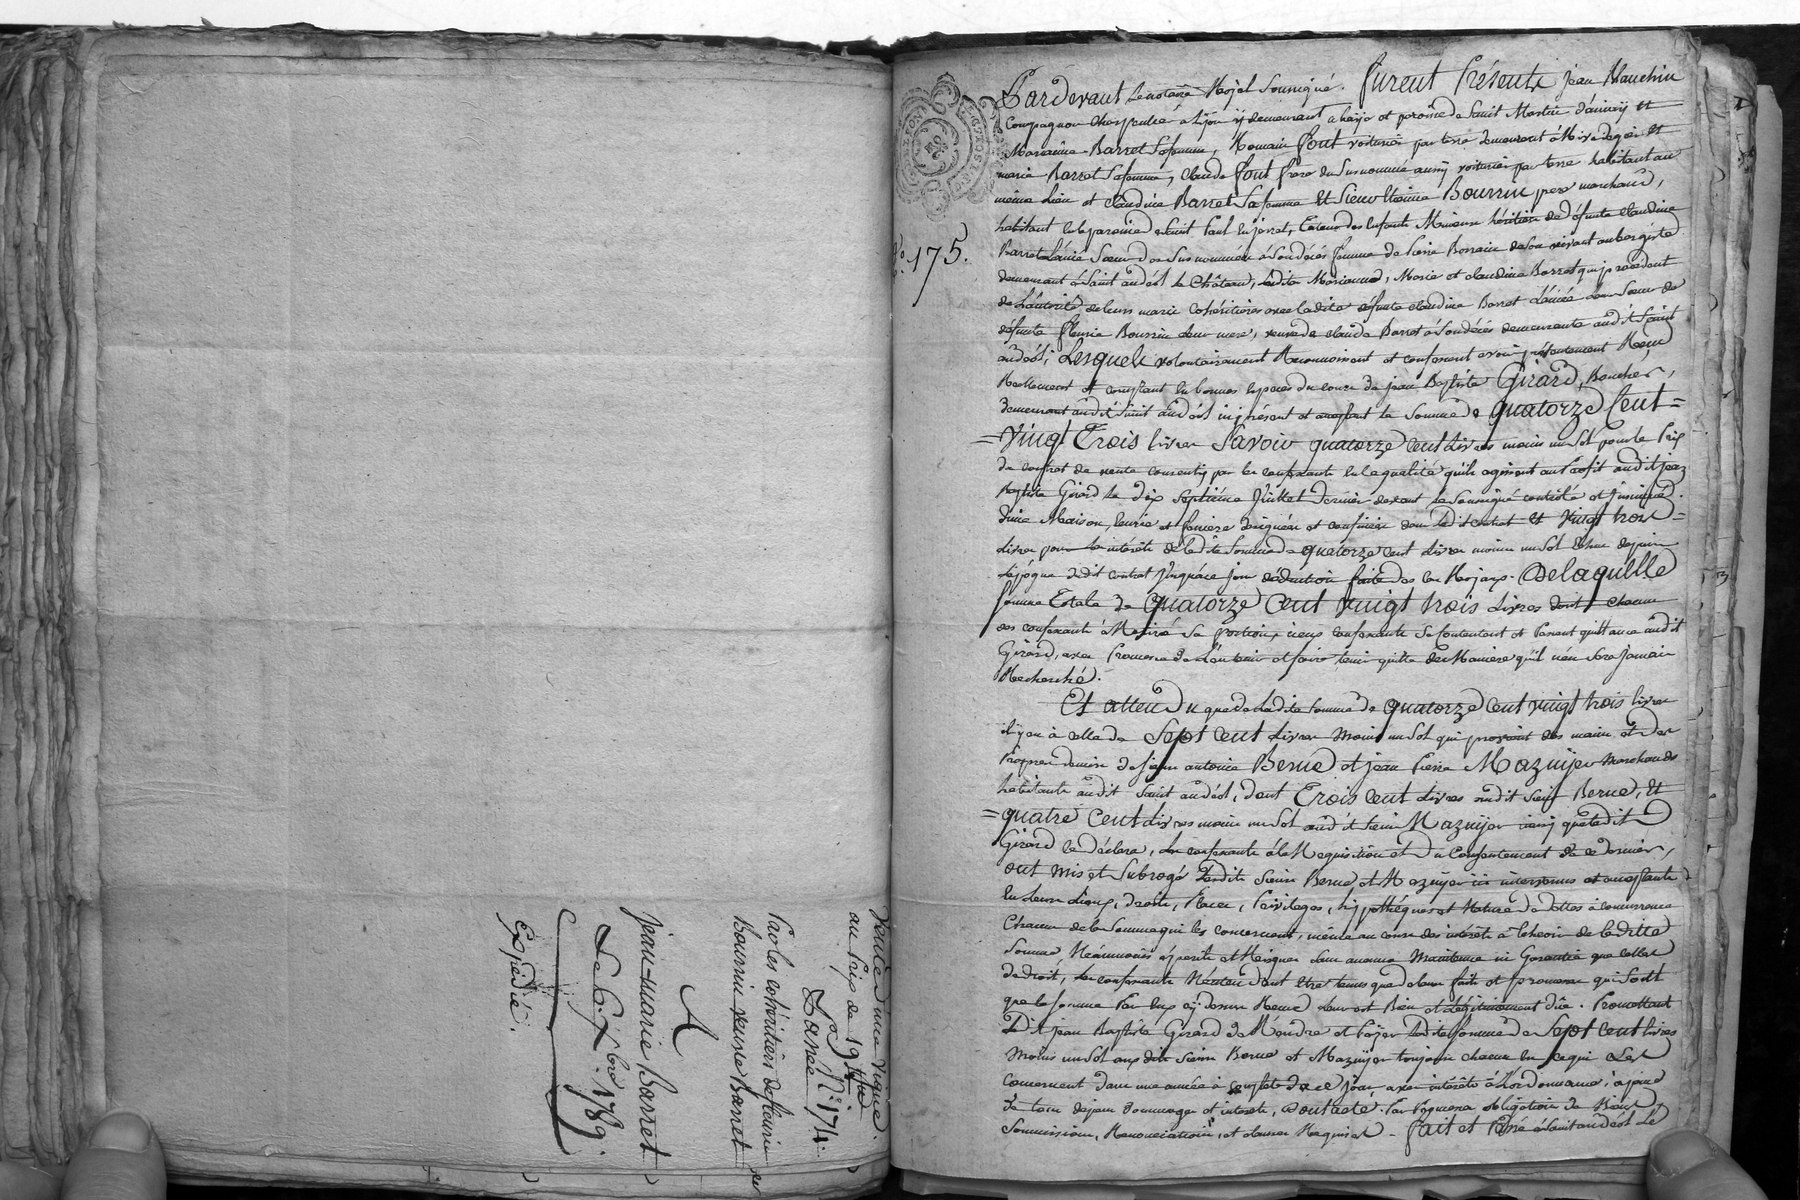 Vente d'une Vigne.
au Prix de 199
Passée N.º 174.
Par les cohéritiers de fleurie
Bourrin veuve Barret
A
Jean-marie Barret
Le 6. 7.bre 1789.
Expédié.
N.º 175.
Pardevant Le notaire Royal Soussigné. furent Présents Jean Blanchin
Compagnon charpentier à Lyon y demeurant paroisse de Saint Martin d'ainay et
Marianne Barret Sa femme, Romain font voiturier par terre demeurant à Rivedegier et
marie Barret Sa femme, claude font frere du Susnommé aussy voiturier par terre habitant au
même Lieu et claudine Barret Sa femme Et Sieur Etienne Bourrin pere marchand,
habitant la paroisse Saint Paul En Jarret, Tuteur des Enfants Mineurs héritiers de défunte claudine
Barret L'ainée Sœur des Susnommées à Son décès femme de Pierre de son vivant aubergiste
demeurant à Saint andéol Le Château, Lesdites Marianne, Marie et claudine Barret qui procedent
de L'autorité de leurs maris Cohéritieres avec ladite défunte claudine Barret L'ainée Leur Sœur de
défunte fleurie Bourrin Leur mere, veuve de claude Barret à Son décès demeurante audit Saint
andéol; Lesquels volontairement Reconnoissent et confessent avoir présentement Reçu
Réellement et comptant En bonnes Especes du cours de jean Baptiste Girard, Boucher,
demeurant audit Saint andéol ici présent et acceptant la Somme de quatorze Cent
Vingt Trois livres Savoir quatorze cent Livres moins un Sol pour le Prix
du contrat de vente consenti par les confessants En la qualité qu'ils agissent au Profit audit jean
Baptiste Girard Le dix Septième Juillet dernier devant Le Soussigné controlé et Insinué
d'une Maison, Ecurie et feniere désignées et confinées dans Ledit contrat Et Vingt trois
Livres pour les interêts de Ladite Somme de quatorze cent Livres moins un Sol Echus depuis
L'époque dudit contrat Jusqu'à ce jour déduction faite des Royaux. De laquelle
Somme Totale de quatorze Cent vingt trois Livres dont chacun
des confessants a Retiré Sa portion, iceux confessants Se Contentent et Passent quittance audit
Girard, avec Promesse de L'en tenir et faire tenir quitte de Maniere qu'il n'en Sera Jamais
Recherché.
Et attendu que de Ladite Somme de quatorze Cent vingt trois livres
il y en à celle de Sept cent Livres Moins un Sol qui provient des mains et des
Propres deniers de Sieurs antoine Berne et jean Pierre Mazuyer Marchands
habitants audit Saint andéol, dont Trois Cent Livres audit Sieur Berne, Et
quatre Cent Livres moins un Sol audit Sieur Mazuyer ainsy que Ledit
Girard le déclare, Les confessants à la Requisition et du Consentement de ce dernier,
ont mis et Subrogé Lesdits Sieurs Berne et Mazuyer ici intervenus et acceptants
En Leurs Lieux, droits, Places, Privileges, hypothéques et Nature de dettes à concurrence
Chacun de la Somme qui les concernent, même au cours des interêts à Echeoir de Laditte
Somme, Néanmoins à périls et Risques Sans aucune Maintenue ni Garantie que celles
de droit, Les confessants N'Entendant être tenus que de leurs faits et promesses qui Sont
que la Somme Par Eux cy dessus Reçue Leur est Bien et Légitimement düe. Promettant
Ledit jean Baptiste Girard de Rendre et Payer Ladite Somme de Sept Cent Livres
Moins un Sol auxdits Sieurs Berne et Mazuyer toujours chacun En ce qui Les
Concernent dans une année à compter de ce jour avec interêts à L'ordonnance, à peine
de tous dépens dommages et interêts, Dont acte. Par Promesse obligation de Biens
Soumissions, Renonciations, et clauses Requises. fait et Passé à Saint andéol Le